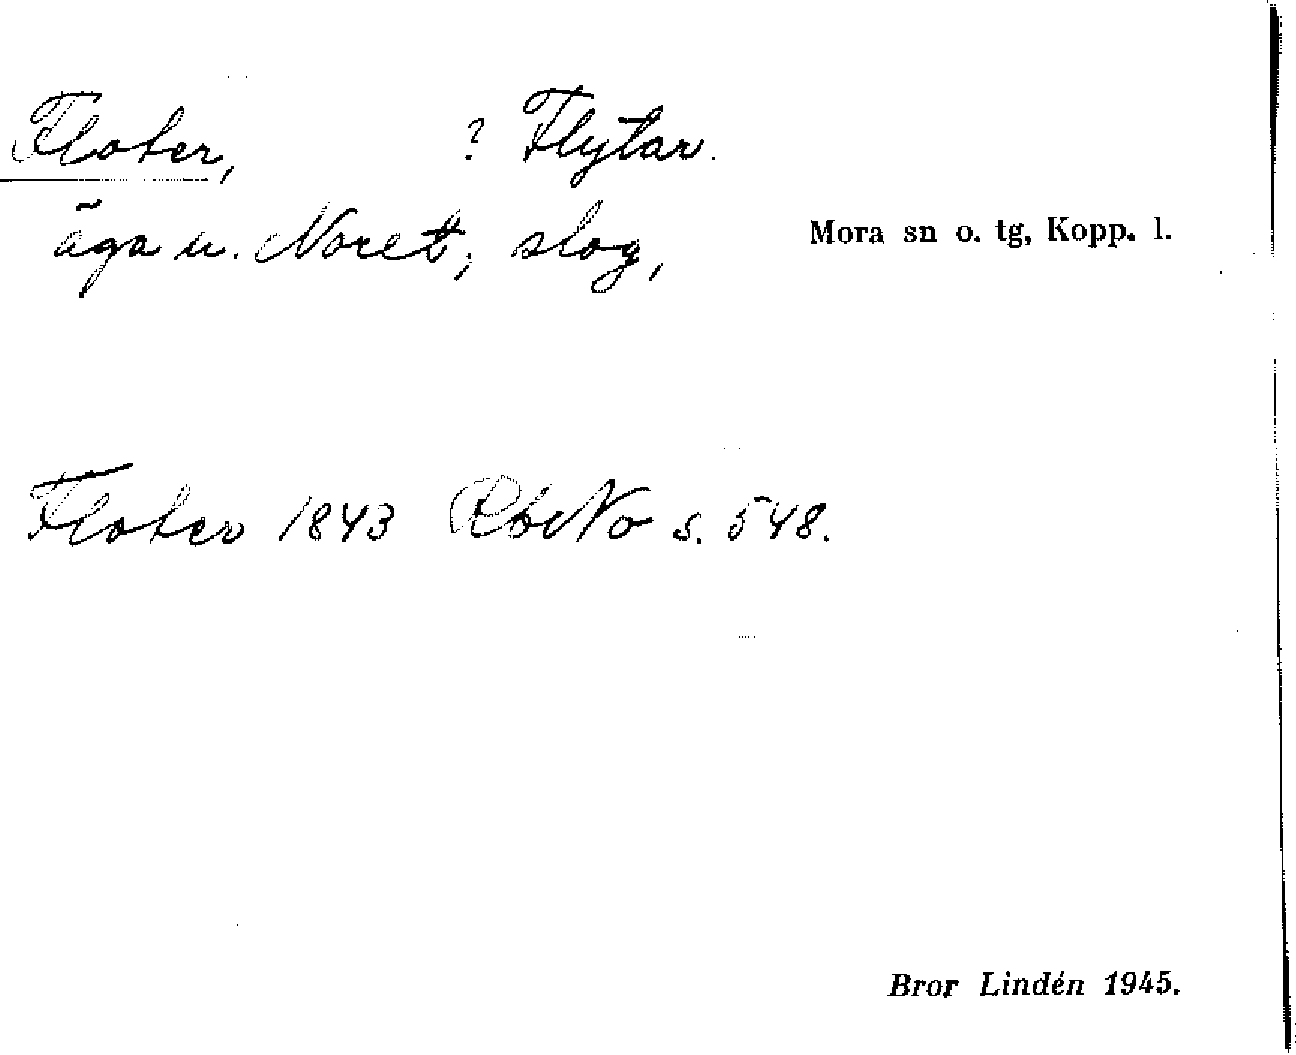 Floter, ? Flytar.
äga u. Noret, slog,
Mora sn o. tg, Kopp. l.
Floter 1843 RboNo s. 548.
Bror Lindén 1945.